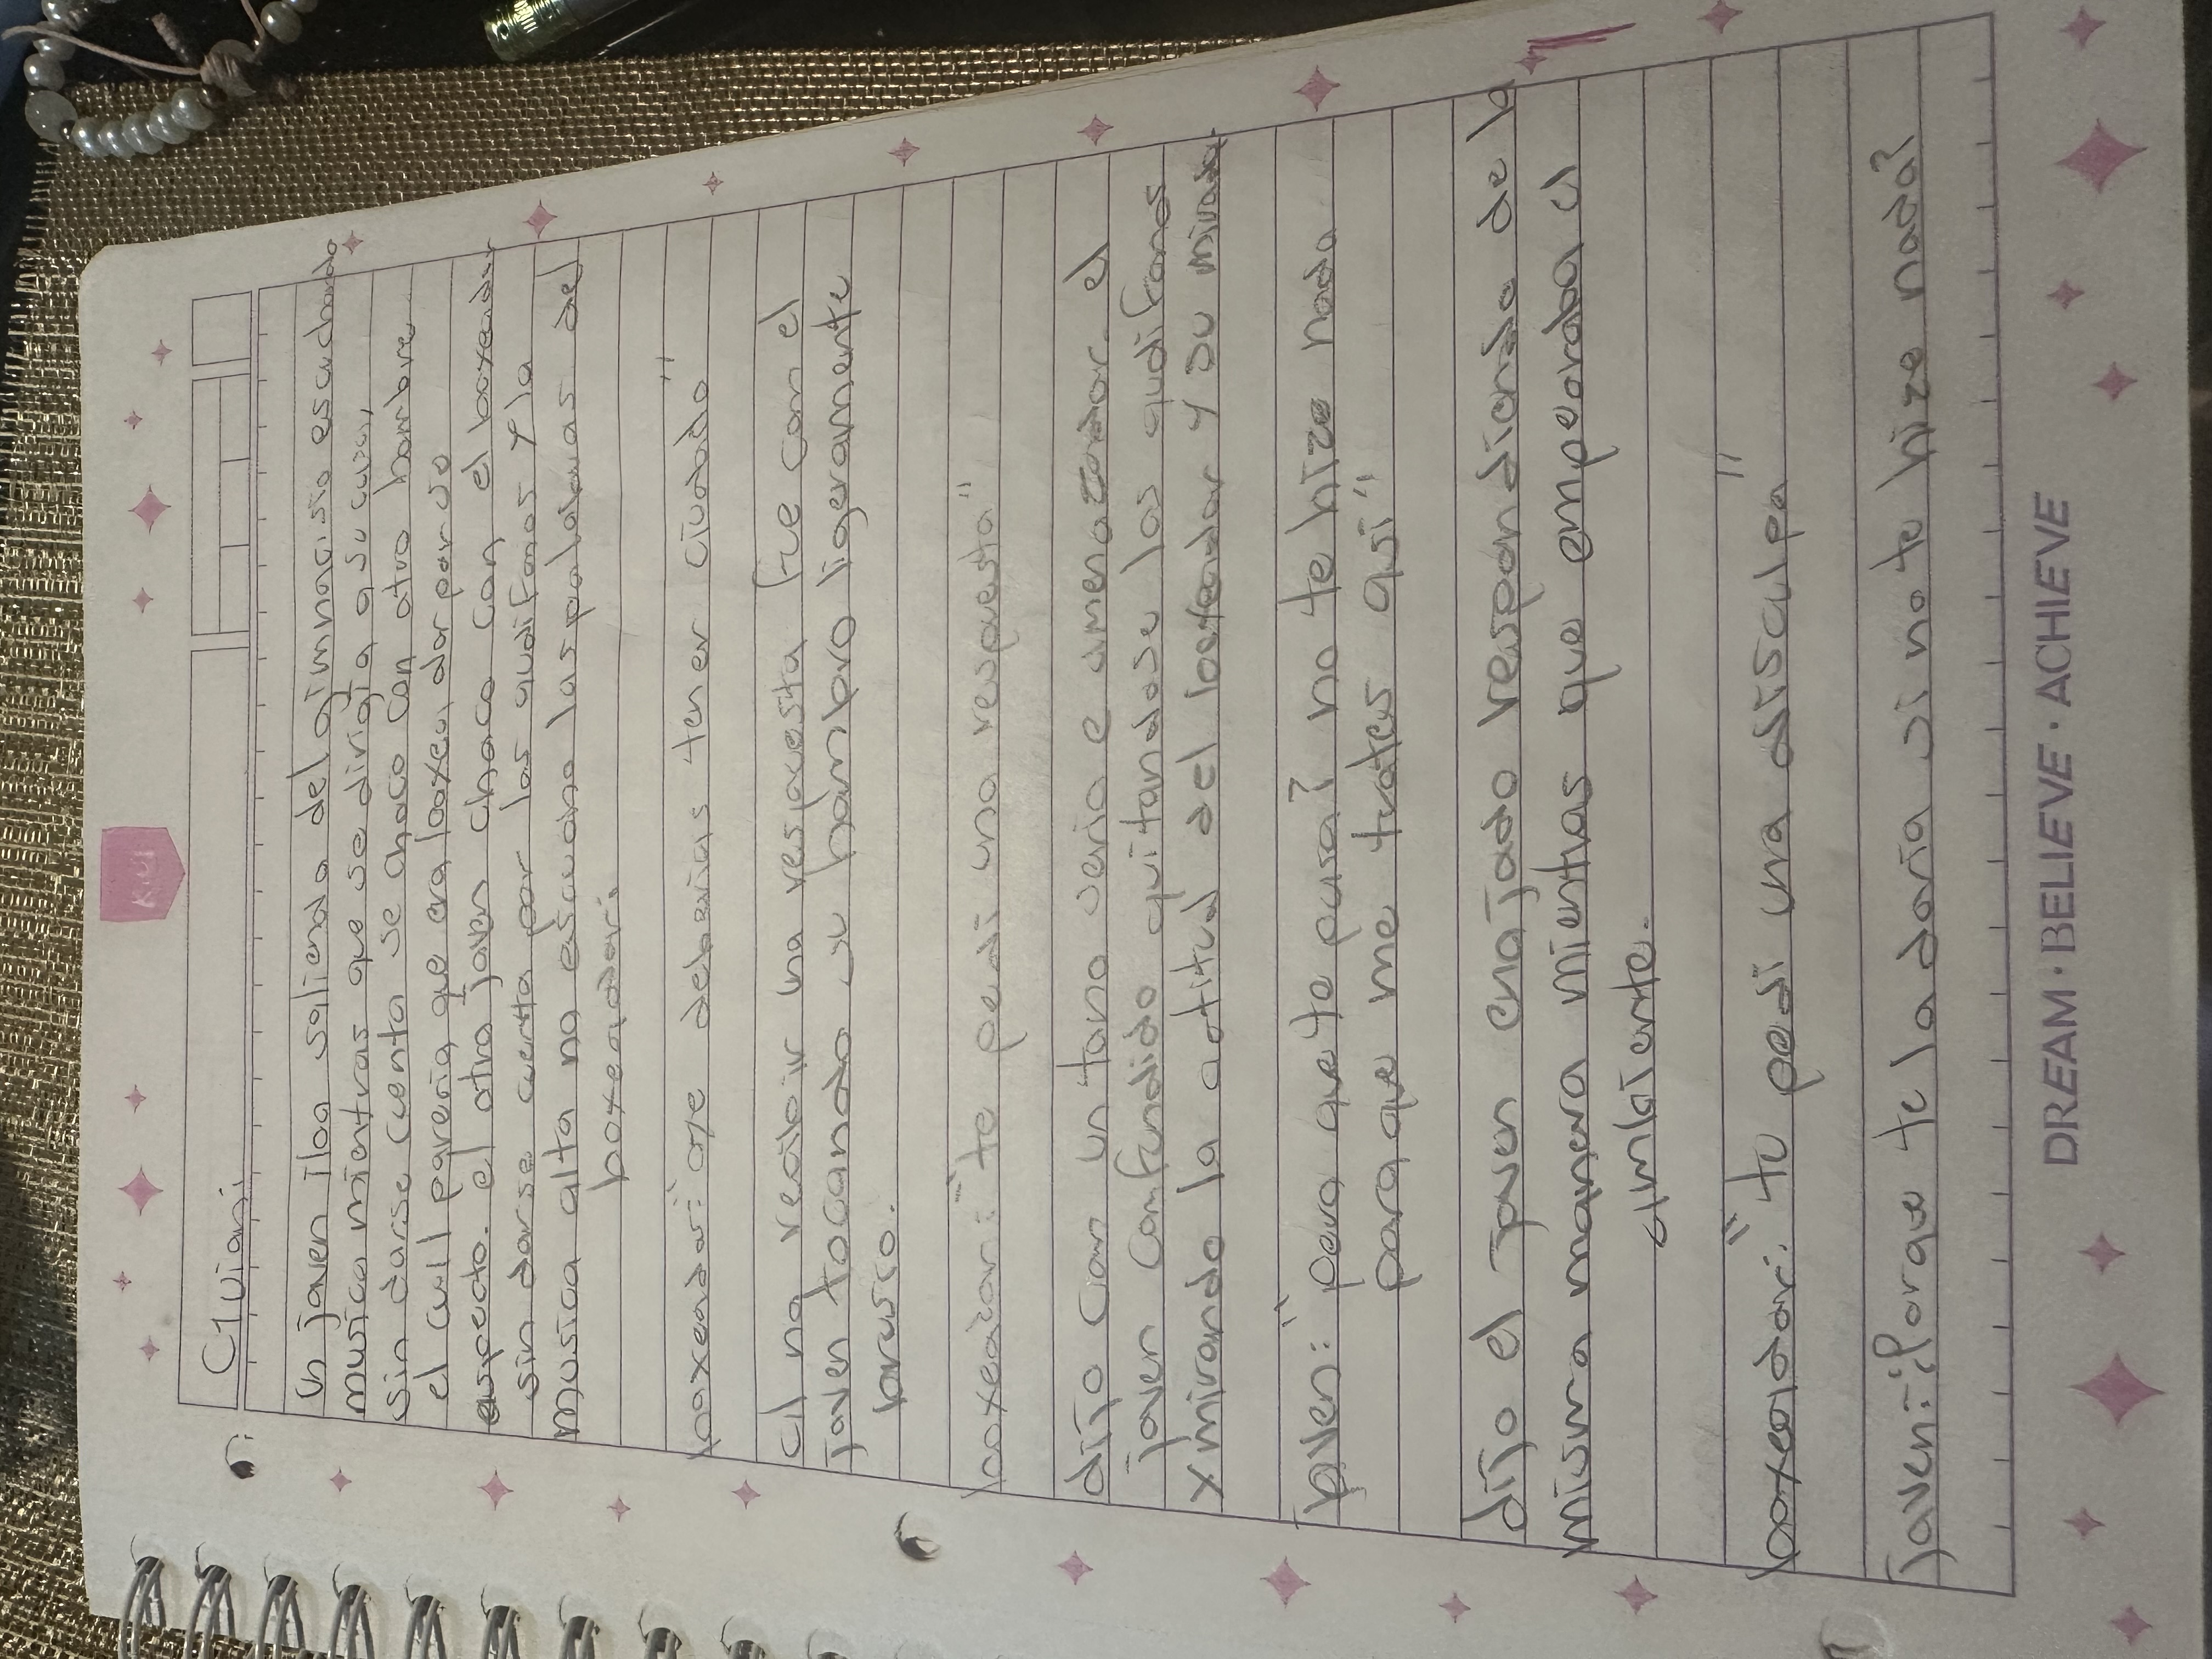 C1 Viani
un joven iba saliendo del gimnacisio escuchando
musica mientras que se dirigia a su casa,
sin darse cuenta se choco con otro hombre
el cual parecia que era boxeador por su
aspecto. el otro joven choco con el boxeador
sin darse cuenta por los audifonos y la
musica alta no escucho las palabras del
boxeador.
boxeador: oye deberias tener ciudado"
al no recibir una respuesta fue con el
joven tocando su hombro ligeramente
brusco.
boxeador: "te pedi una respuesta"
dijo con un tono serio e amenazador. el
joven confundido quitandose los audifonos
x mirando la actitud del boxeador y su mirada
joven: "pero que te pasa? no te hize nada
para que me trates asi"
dijo el joven enojado respondiendo de la
misma manera mientras que emperoba el
ambiente.
boxeador: "tu pedi una disculpa"
joven: ¿Porque te la daria si no te hize nada?
DREAM · BELIEVE · ACHIEVE